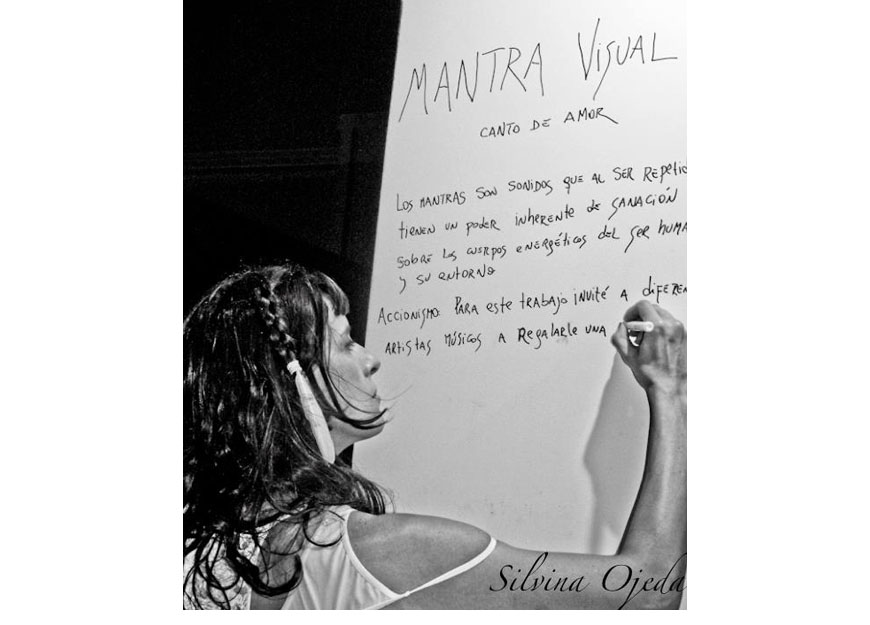 MANTRA VISUAL
CANTO DE AMOR
LOS MANTRAS SON SONIDOS QUE AL SER REPETID
TIENEN UN PODER INHERENTE DE SANACIÓN
SOBRE LOS CUERPOS ENERGÉTICOS DEL SER HUMA
Y SU ENTORNO
ACCIONISMO: PARA ESTE TRABAJO INVITÉ A DIFEREN
ARTISTAS MÚSICOS A REGALARLE UNA
Silvina Ojeda